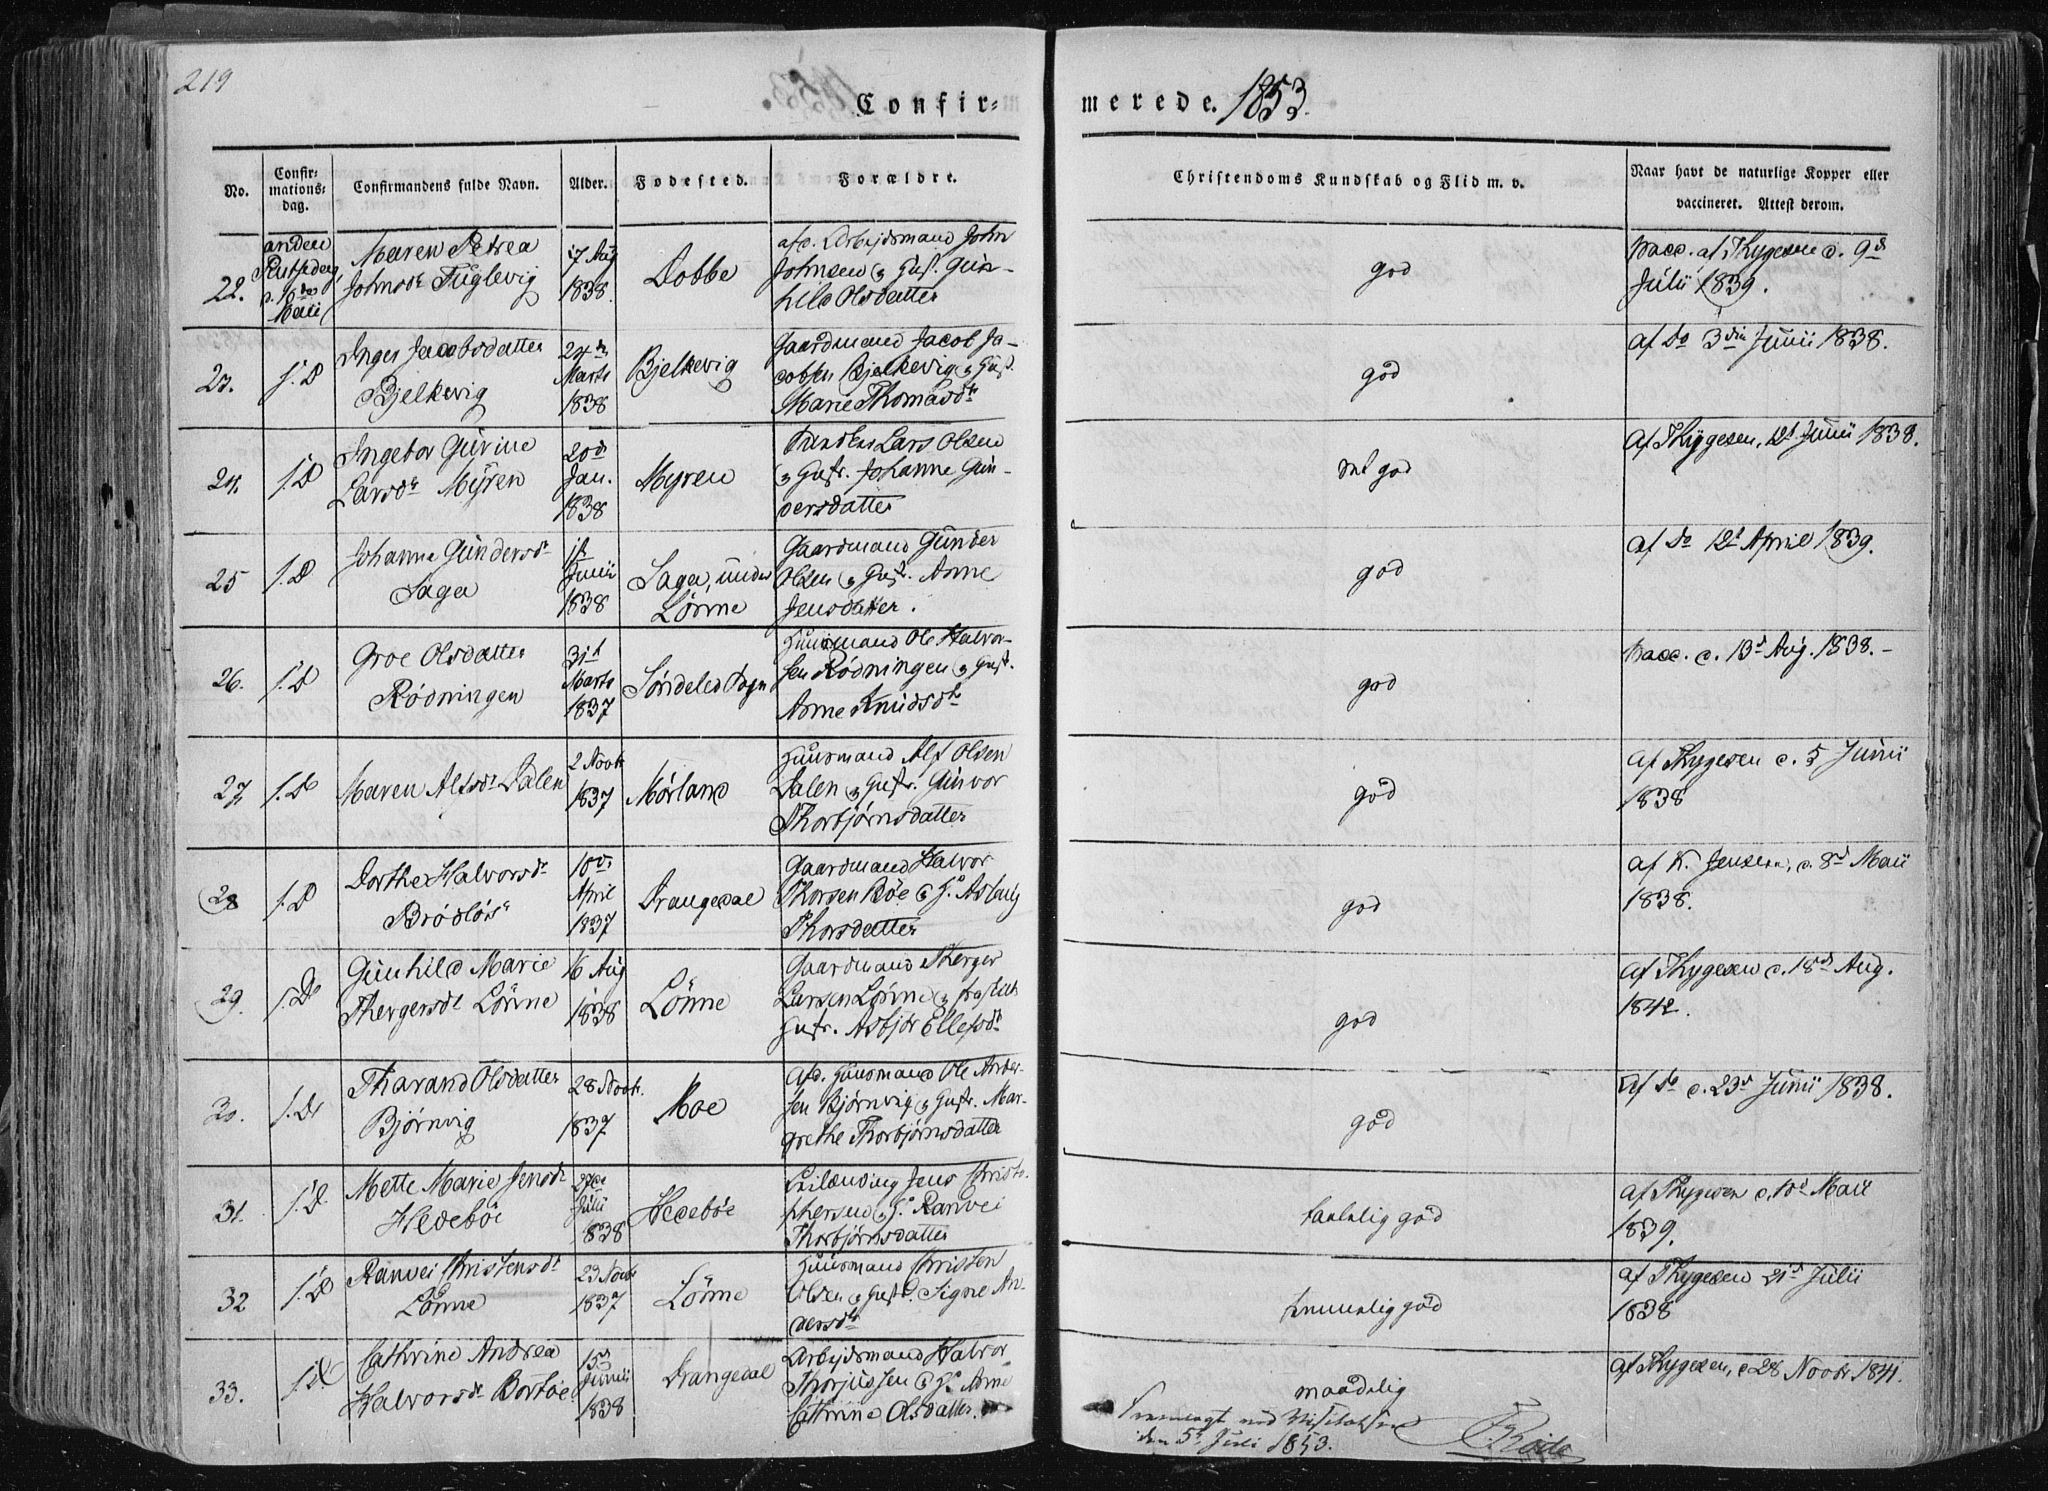 219
Confir-
merede. 1853.
No.
Confir-
mations-
dag.
Confirmandens fulde Navn.
Alder.
Fødested.
Forældre.
Christendoms Kundskab og Flid m. v.
Naar havt de naturlige Kopper eller
vaccineret. Attest derom.
22.
anden
Maii
Maren Petrea
Johnsdr Fuglevig
17 Aug
1838.
Dobbe
afd. Arbejdsmand John
Johnsen og Hust. Gun-
hild Olsdatter
god
Vacc. af Thygesen d. 9d
Julii 1839.
23.
s. D
Inger Jacobsdatter
Bjelkevig
24de
Marts
1838
Bjelkevig
Gaardmand Jacob Ja-
cobsen Bjelkevig og Hust.
Marie Thomasdr
god
af Do 3die Junii 1838.
24.
s. D
Ingebor Gurine
Larsdr Myren
20d
Jan.
1838
Myren
Lars Olsen
og Hustr. Johanne Gun-
dersdatter
god
af Thygesen, 12t Junii 1838.
25
s. D
Johanne Gundersdr
Saga
1st
Junii
1838
Saga, under
Lönne
Gaardmand Gunder
Olsen og Hust. Anne
Jensdatter.
god
af Do 12t April 1839.
26.
s. D
Groe Olsdatter
Rödningen
31t
Marts
1837
Söndeled Sogn
Huusmand Ole Halvor-
sen Rödningen og Hust.
Anne Knudsdr
god
Vacc. d. 13d Aug. 1838.-
27,
s. D
Maren Alfsdr Dalen
2 Novbr
1837
Mørland
Huusmand Alf Olsen
Dalen og Hustr. Gunvor
Thorbjørnsdatter
god
af Thygesen d. 5 Junii
1838
28
s. D
Dorthe Halvorsdr
Brödlös
10d
April
1837
Drangedal
Gaardmand Halvor
Thorsen Böe og H. Aslaug
Thorsdatter
god
af K. Jensen, d. 8d Maii
1838.
29.
s. D
Gunhild Marie
Thergersdr Lönne
16 Aug
1838
Lönne
Gaardmand Therger
Larsen Lönne og
Hustr. Asbjør Ellefsdr
god
af Thygesen d. 18d Aug.
1842.
30.
s. D
Tharand Olsdatter
Bjørnvig
28 Novbr.
1837
Moe
Afd. Huusmand Ole Ander-
sen Bjørnvig og Hustr. Mar-
grethe Thorbjörnsdatter
god
af Do d. 23d Junii 1838.
31.
s. D
Mette Marie Jensdr
Hedebøe
Julii
1838
Hedebøe
Jens Christo-
phersen og H. Ranvei
Thorbjörnsdatter
taalelig god
af Thygesen d. 10d Maii
1839.
32
s. D
Ranvei Christensdr
Lönne
23 Novbr
1837
Lönne
Huusmand Christen
Olsen og Hust. Signe An-
dersdr
temmelig god
af Thygesen 21d Julii
1838
33.
s. D
Cathrine Andrea
Halvorsdr Bostöe
15d
Junii
1838
Drangedal
Arbejdsmand Halvor
Thorjussen og H. Anne
Cathrine Olsdatter.
maadelig
af Thygesen, d 28 Novbr 1841.
Fremlagt ved Visitatsen
den 5t Juli 1853.